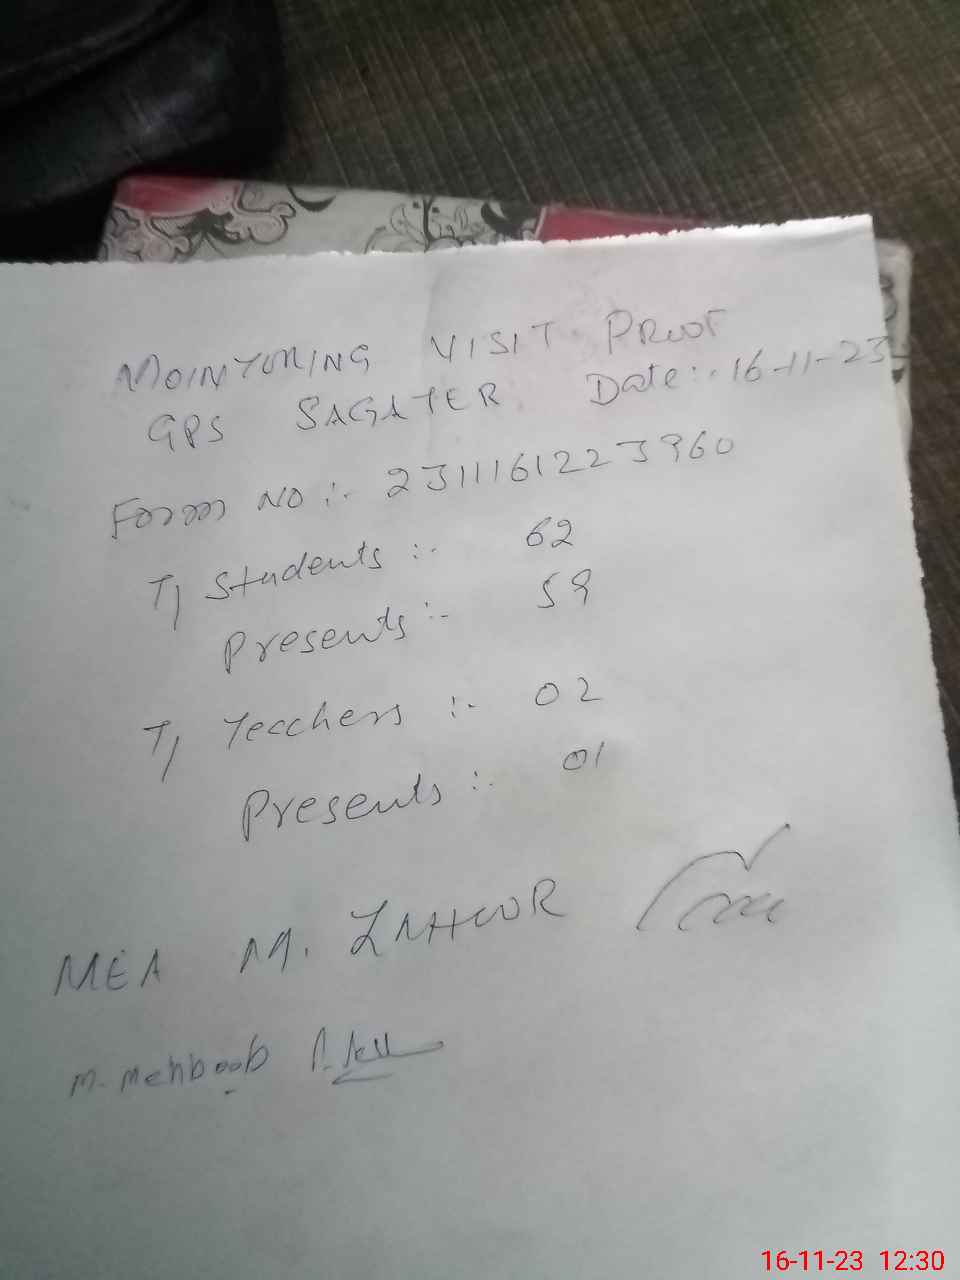 MOINTORING VISIT PROOF
GPS SAGATER Date:- 16-11-23
Form NO :- 2311161223960
T/ Students :- 62
Presents :- 59
T/ Teachers :- 02
Presents :- 01
MEA M. ZAHOOR
M. Mehboob
16-11-23 12:30